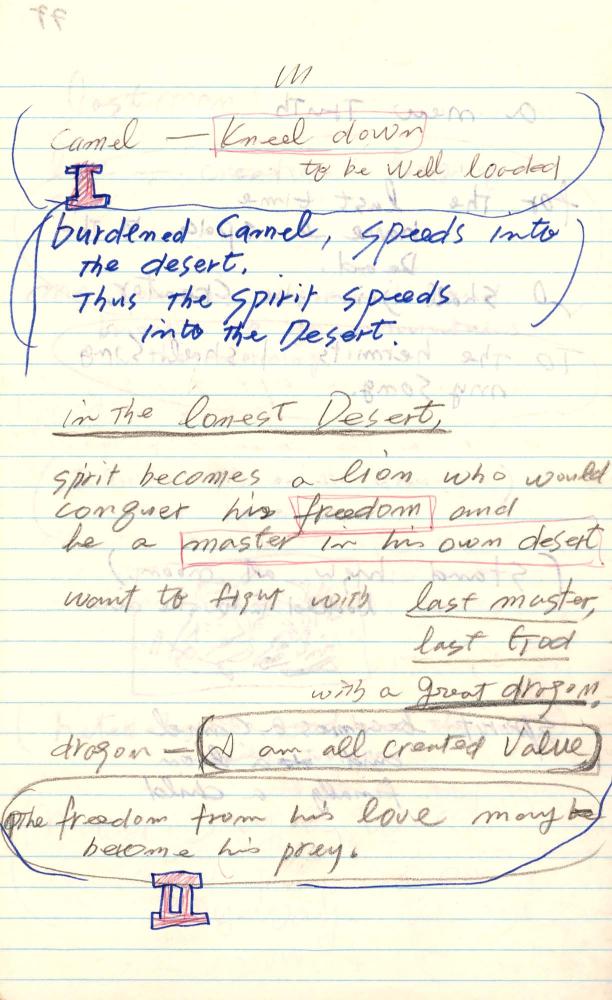 camel — Kneel down
to be well loaded
I
burdened Camel, speeds into
the desert.
Thus the spirit speeds
into the Desert.
in the lonest Desert,
spirit becomes a lion who would
conquer his freedom and
be a master in his own desert
want to fight with last master,
last God
with a great dragon.
dragon — I am all created Value
The freedom from his love may be
become his prey.
II